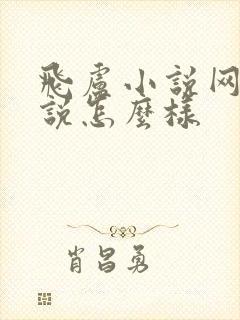 飛盧小说网
說怎麼樣
肖昌勇